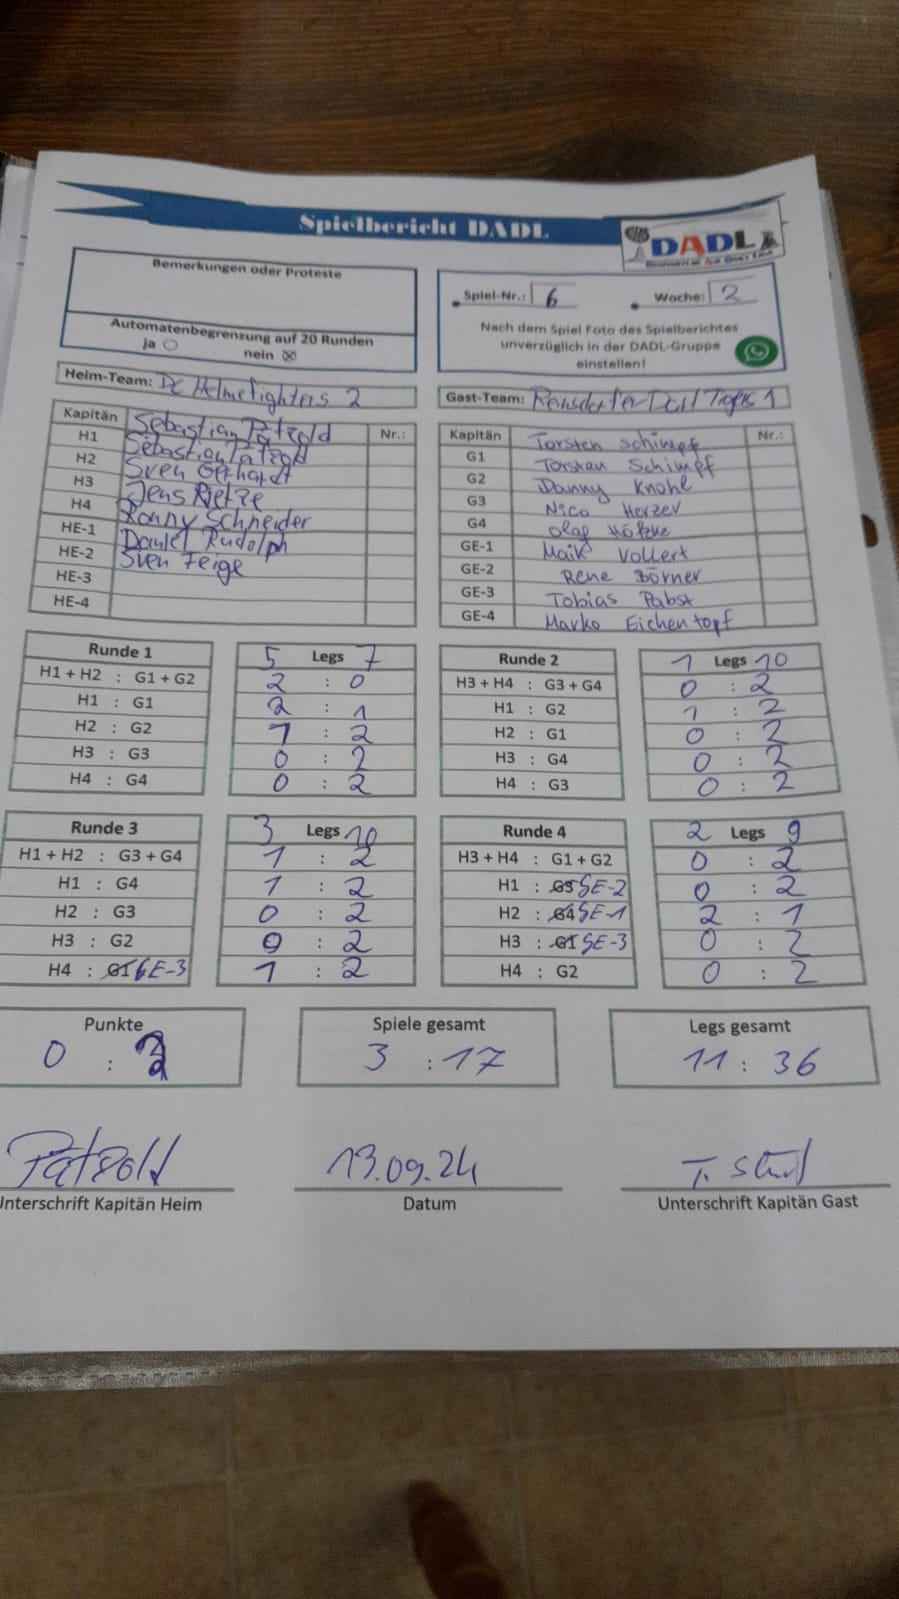 Spielbericht DADL
DADL
Bemerkungen oder Proteste
Automatenbegrenzung auf 20 Runden
ja
nein
Spiel-Nr.: 6
Woche: 2
Nach dem Spiel Foto des Spielberichtes
unverzüglich in der DADL-Gruppe
einstellen!
Heim-Team: DC Helmefighters 2
Kapitän Sebastian Pätzold Nr.:
H1 Sebastian Pätzold
H2 Sven Gerhardt
H3 Jens Rietze
H4 Ronny Schneider
HE-1 Daniel Rudolph
HE-2 Sven Feige
HE-3
HE-4
Gast-Team: Reinsdorfer Dart Tigers 1
Kapitän Torsten Schimpf Nr.:
G1 Torsten Schimpf
G2 Danny Knohl
G3 Nico Herzer
G4 Olaf
GE-1 Maik Vollert
GE-2 Rene Börner
GE-3 Tobias Pabst
GE-4 Marko Eichentopf
Runde 1 5 Legs 7
H1 + H2 : G1 + G2 2 : 0
H1 : G1 2 : 1
H2 : G2 1 : 2
H3 : G3 0 : 2
H4 : G4 0 : 2
Runde 2 1 Legs 10
H3 + H4 : G3 + G4 0 : 2
H1 : G2 1 : 2
H2 : G1 0 : 2
H3 : G4 0 : 2
H4 : G3 0 : 2
Runde 3 3 Legs 10
H1 + H2 : G3 + G4 1 : 2
H1 : G4 1 : 2
H2 : G3 0 : 2
H3 : G2 0 : 2
H4 : G1 GE-3 1 : 2
Runde 4 2 Legs 9
H3 + H4 : G1 + G2 0 : 2
H1 : G3 GE-2 0 : 2
H2 : G4 GE-1 2 : 1
H3 : G1 GE-3 0 : 2
H4 : G2 0 : 2
Punkte
0 : 3
Spiele gesamt
3 : 17
Legs gesamt
11 : 36
Pätzold
Unterschrift Kapitän Heim
13.09.24
Datum
T.
Unterschrift Kapitän Gast